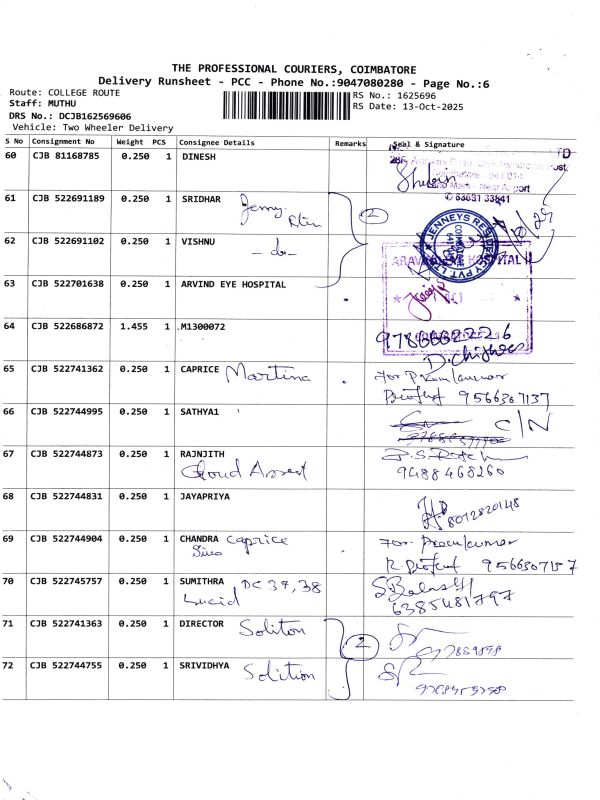 THE PROFESSIONAL COURIERS, COIMBATORE
Delivery Runsheet - PCC - Phone No.:9047080280 - Page No.:6
Route: COLLEGE ROUTE
Staff: MUTHU
DRS No.: DCJB162569606
Vehicle: Two Wheeler Delivery
RS No.: 1625696
RS Date: 13-Oct-2025
S No Consignment No Weight PCS Consignee Details Remarks Seal & Signature
60 CJB 81168785 0.250 1 DINESH
61 CJB 522691189 0.250 1 SRIDHAR Jenny
2
62 CJB 522691102 0.250 1 VISHNU - do -
JENNEYS RESIDENCY PVT. LTD
63 CJB 522701638 0.250 1 ARVIND EYE HOSPITAL
64 CJB 522686872 1.455 1 .M1300072
65 CJB 522741362 0.250 1 CAPRICE Martina
for Premkumar
9566307137
66 CJB 522744995 0.250 1 SATHYA1 C/N
67 CJB 522744873 0.250 1 RAJNJITH
Cloud Assert
9488468260
68 CJB 522744831 0.250 1 JAYAPRIYA
8012820148
69 CJB 522744904 0.250 1 CHANDRA Caprice
for Premkumar
9566307137
70 CJB 522745757 0.250 1 SUMITHRA DC 37,38
Lucid
6385481797
71 CJB 522741363 0.250 1 DIRECTOR Soliton
2
72 CJB 522744755 0.250 1 SRIVIDHYA Solition